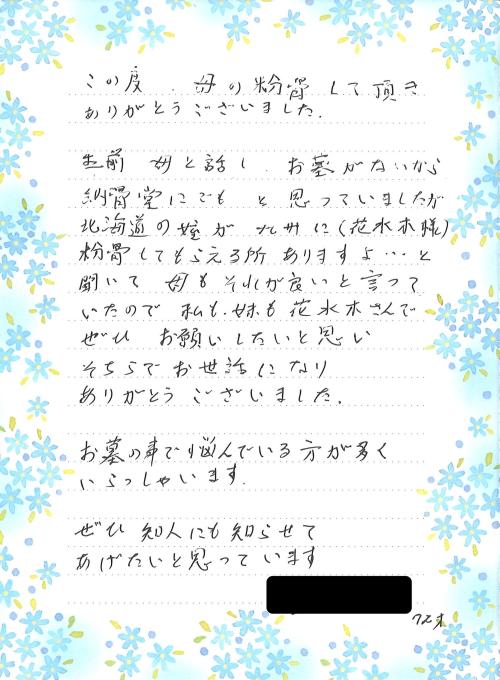 この度、母の粉骨して頂き
ありがとうございました.
生前 母と話し、お墓がないから
納骨堂にでも と思っていましたが
北海道の姪が九州に(花水木様)
粉骨してもらえる所ありますよ…と
聞いて 母もそれが良いと言って
いたので 私も.妹も花水木さんで
ぜひ お願いしたいと思い
そちらでお世話になり
ありがとうございました.
お墓の事で悩んでいる方が多く
いらっしゃいます.
ぜひ 知人にも知らせて
あげたいと思っています
72才